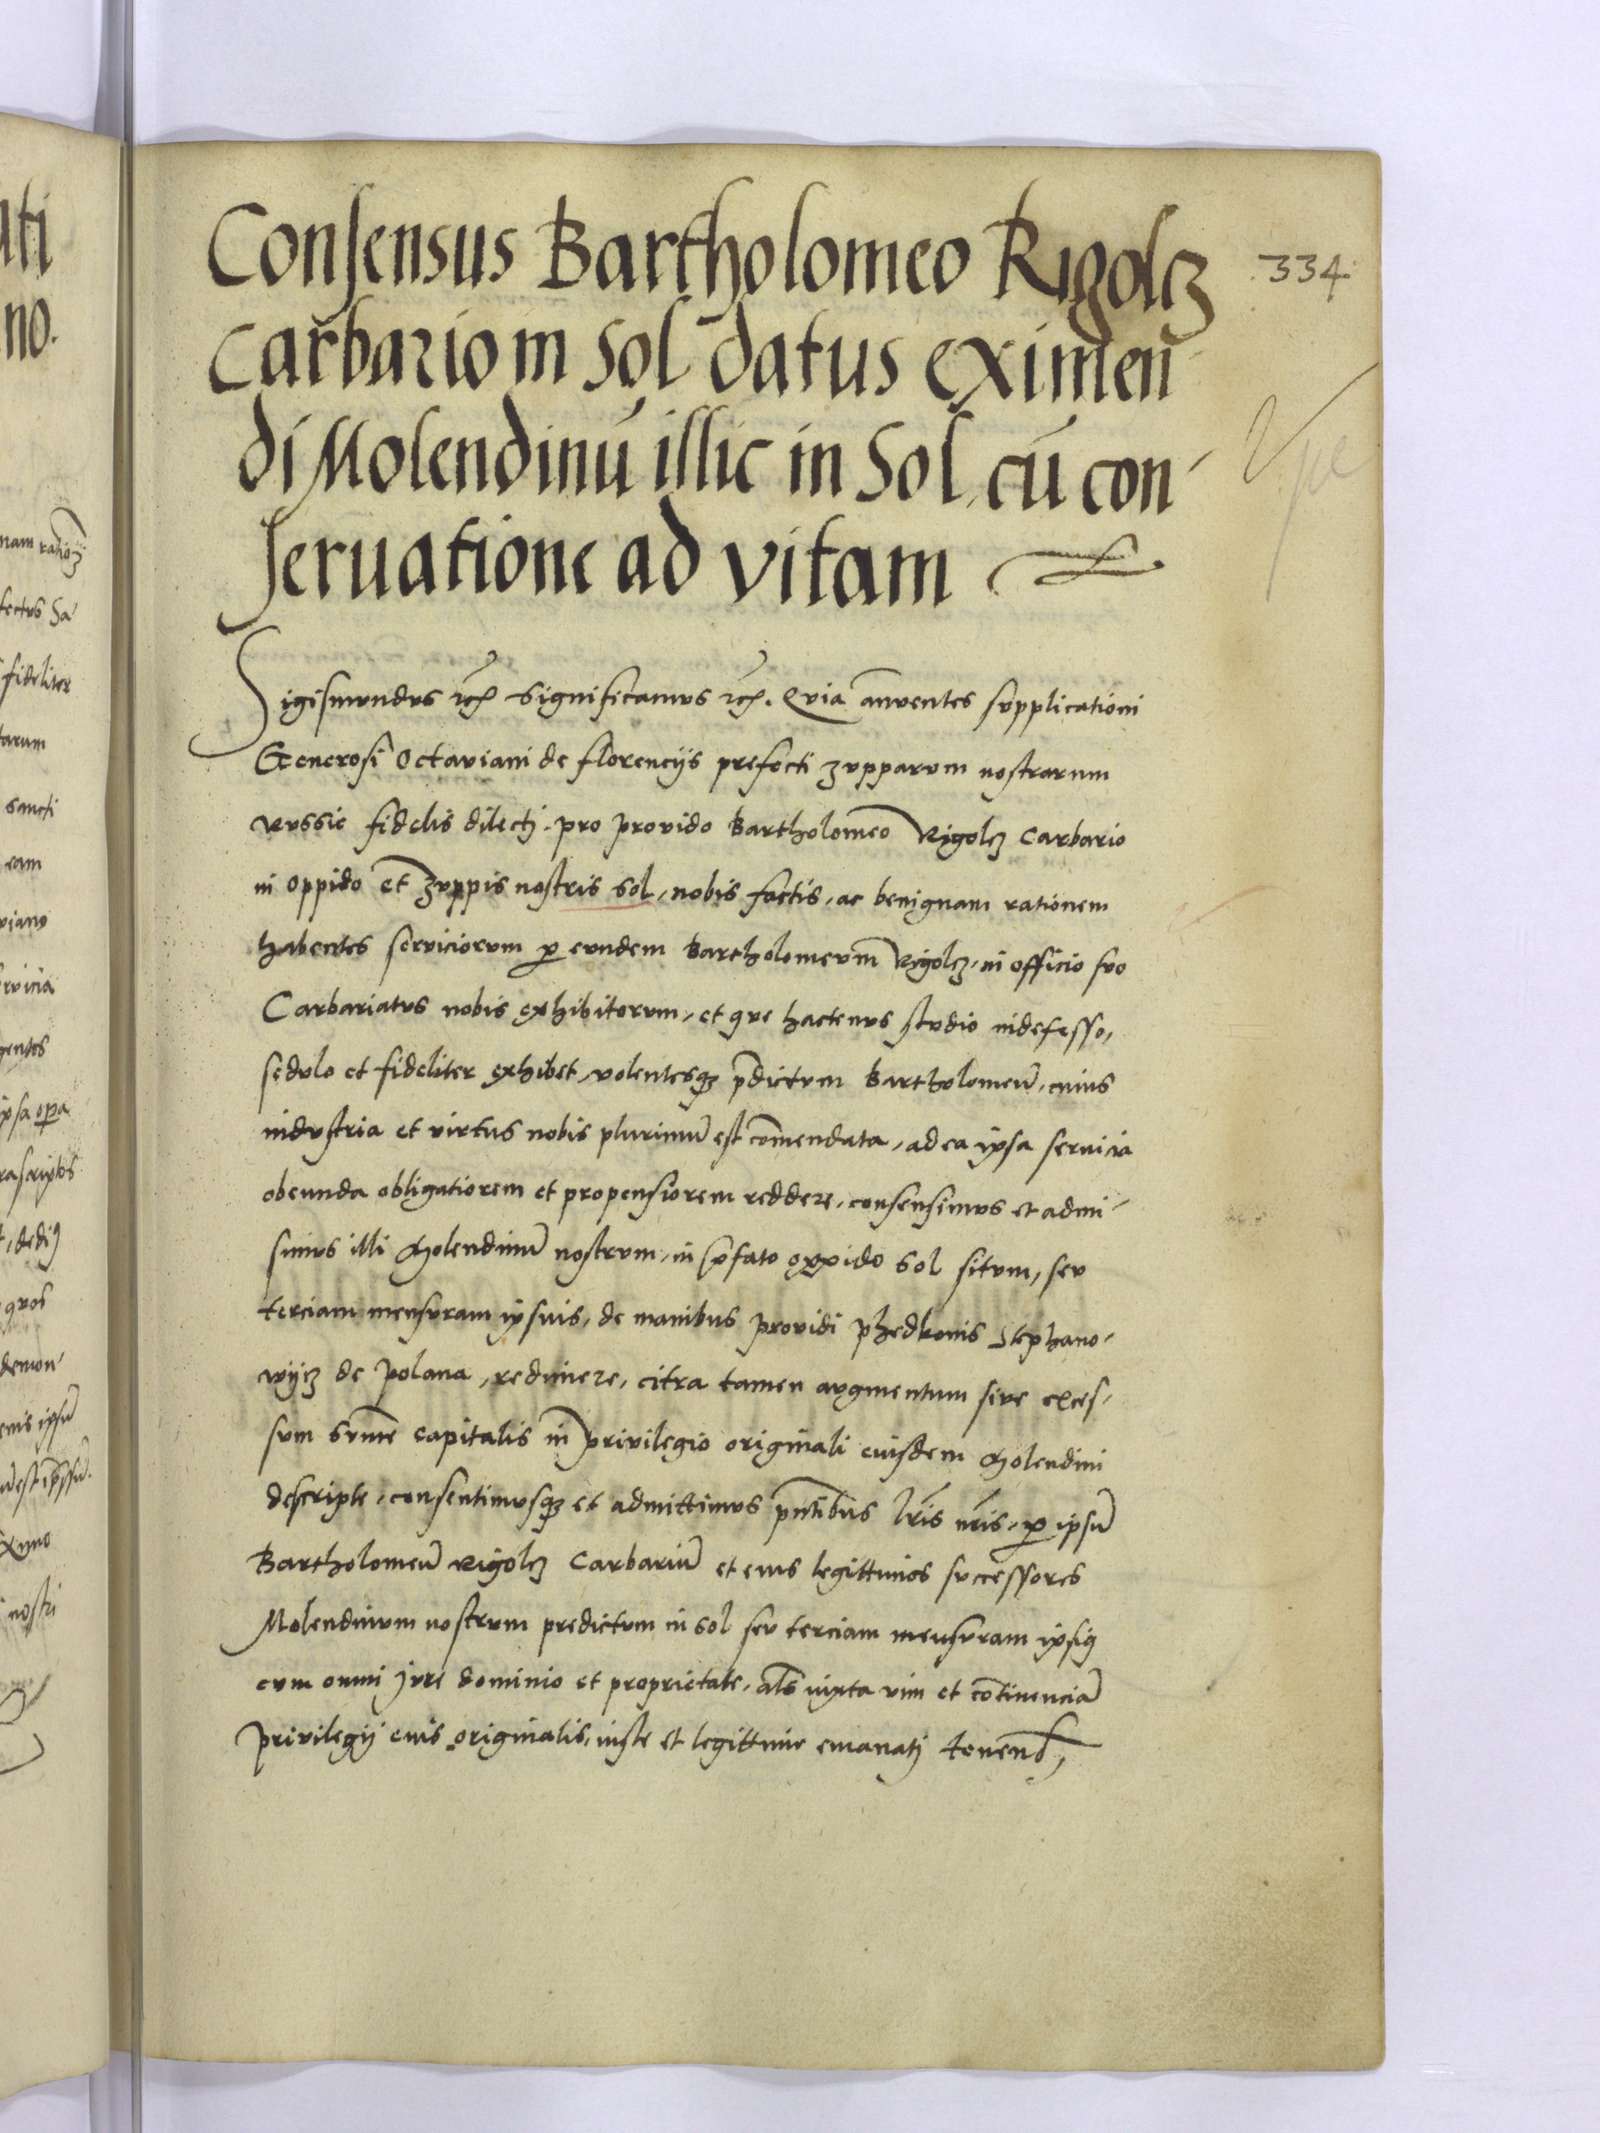 Consensus Bartholomeo Rigolcz
carbario in Sol datus eximen
di Molendinū illic in Sol, cū con-
seruatione ad vitam
334
Sigismundus etc Significamus etc. Quia annuentes supplicationi
Generosi Octaviani de florencijs prefecti zupparum nostrarum
Russie fidelis dilecti. pro provido Bartholomeo Rigolcz Carbario
in oppido et zuppis nostris Sol, nobis factis, ac benignam rationem
habentes serviciorum p eundem Bartholomeum Rigolcz, in officio suo
Carbariatus nobis exhibitorum, et que hactenus studio indefesso,
sedulo et fideliter exhibet, volentesqz p̄dictum Bartholomeū, cuius
industria et virtus nobis plurimū est com̄endata, ad ea ipsa servicia
obeunda obligatiorem et propensiorem reddere, consensimus et admi-
simus illi Molendinū nostrum, in p̄fato oppido Sol situm, seu
terciam mensuram ipsius, de manibus providi phedkonis Stephano-
wijcz de polana, redimere, citra tamen augmentum sive exces-
sum sum̄e capitalis in privilegio originali eiusdem Molendini
descripte, consentimusqz et admittimus pn̄tibus l̄ris n̄ris, p ipsū
Bartholomeū Rigolcz Carbariū et eius legittimos successores
Molendinum nostrum predictum in Sol seu terciam mensuram ipsiq
cum omni jure dominio et proprietate, als̄ iuxta vim et contin̄enciā
privilegij eius originalis, iuste et legittime emanatj tenend̄,